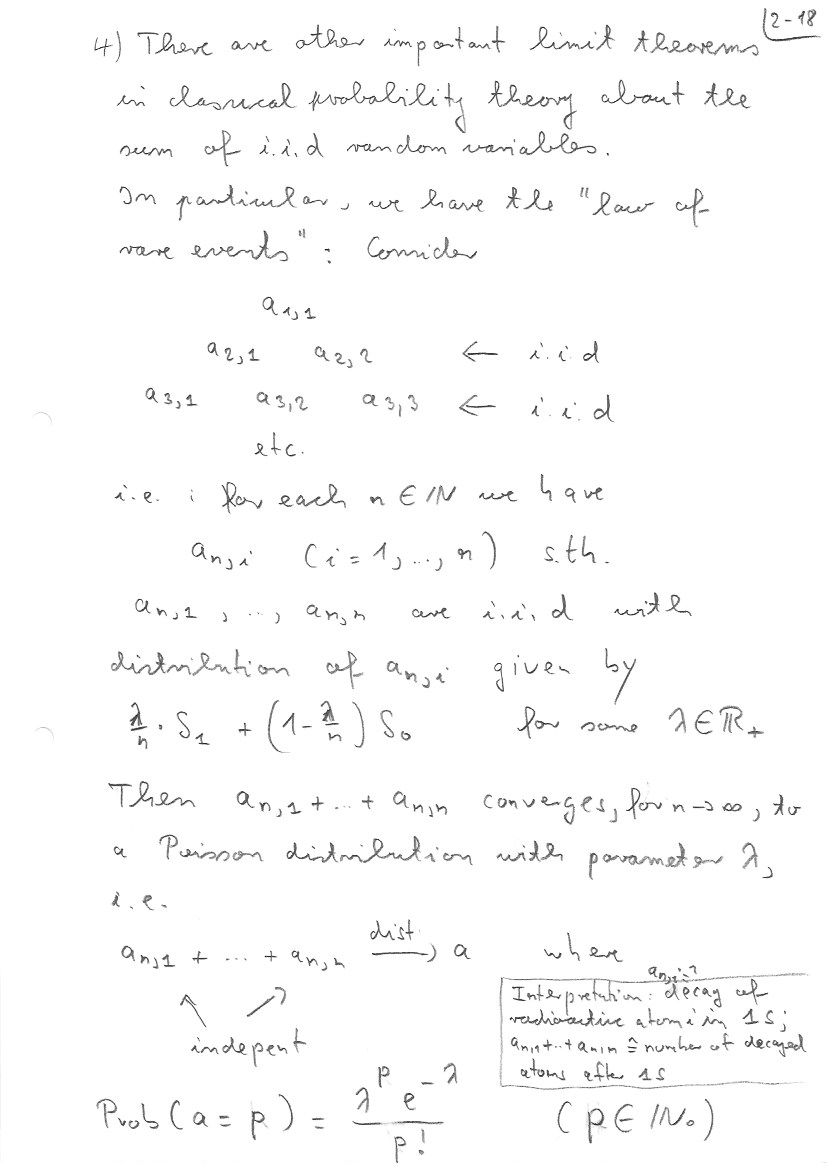 2-18
4) There are other important limit theorems
in classical probability theory about the
sum of i.i.d random variables.
In particular, we have the "law of
rare events": Consider
a₁,₁
a₂,₁ a₂,₂ ← i.i.d
a₃,₁ a₃,₂ a₃,₃ ← i.i.d
etc.
i.e. : for each n ∈ ℕ we have
aₙ,ᵢ (i = 1, ..., n) s.th.
aₙ,₁ , ..., aₙ,ₙ are i.i.d with
distribution of aₙ,ᵢ given by
λ/n · δ₁ + (1 - λ/n) δ₀ for some λ ∈ ℝ₊
Then aₙ,₁ + ... + aₙ,ₙ converges, for n → ∞, to
a Poisson distribution with parameter λ,
i.e.
aₙ,₁ + ... + aₙ,ₙ —dist→ a where
indepent
aₙ,ᵢ ≙
Interpretation: decay of
radioactive atom i in 1s;
aₙ,₁+..+aₙ,ₙ ≙ number of decayed
atoms after 1s
Prob(a = p) = λᵖ e^{-λ} / p! (p ∈ ℕ₀)